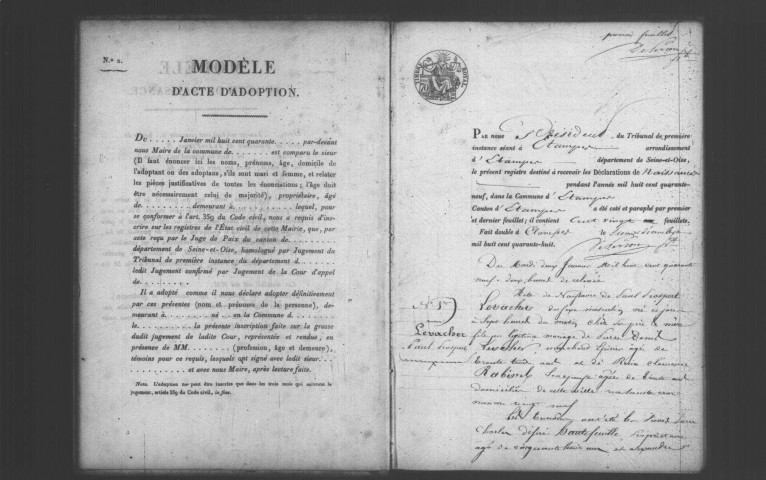 N.º 2.
MODÈLE
D'ACTE D'ADOPTION.
Du . . . . . . Janvier mil huit cent quarante . . . . . . par-devant
nous Maire de la commune de . . . . . . est comparu le sieur
(Il faut énoncer ici les noms, prénoms, âge, domicile de
l'adoptant ou des adoptans, s'ils sont mari et femme, et relater
les pièces justificatives de toutes les énonciations; l'âge doit
être nécessairement celui de majorité), propriétaire, âgé
de . . . . . . demeurant à . . . . . . lequel, pour
se conformer à l'art. 359 du Code civil, nous a requis d'ins-
crire sur les registres de l'État civil de cette Mairie, que, par
acte reçu par le Juge de Paix du canton de . . . . . .
département de Seine-et-Oise, homologué par Jugement du
Tribunal de première instance du département d . . . . . .
ledit Jugement confirmé par Jugement de la Cour d'appel
de . . . . . .
Il a adopté comme il nous déclare adopter définitivement
par ces présentes (nom et prénoms de la personne), de-
meurant à . . . . . . né . . . en la Commune d . . . . . .
le . . . . . . la présente inscription faite sur la grosse
dudit jugement de ladite Cour, représentée et rendue, en
présence de MM. . . . . . . (profession, âge et demeure),
témoins pour ce requis, lesquels ont signé avec ledit sieur . . .
et avec nous Maire, après lecture faite.
Nota. L'adoption ne peut être inscrite que dans les trois mois qui suivront le
jugement, article 359 du Code civil, in fine.
premier feuillet
TIMBRE ROYAL
PAR NOUS Président du Tribunal de première
instance séant à Etampes arrondissement
d'Etampes département de Seine-et-Oise,
le présent registre destiné à recevoir les Déclarations de Naissance
pendant l'année mil huit cent quarante-
neuf, dans la Commune d'Etampes
Canton d'Etampes a été coté et paraphé par premier
et dernier feuillet; il contient Cent vingt feuillets.
Fait double à Etampes le Décembre
mil huit cent quarante-huit.
Du Mardi deux Janvier Mil huit cent quarante
neuf, deux heures de relevée
N° 1er
Levacher
Paul Prosper
Acte de Naissance de Paul Prosper
Levacher du sexe masculin, né ce jour
à sept heures du matin chez ses père et mère
fils en légitime mariage de Pierre
Levacher, marchand Epicier âgé de
trente ans et de Clémence
Rabinet son épouse âgée de trente ans
domiciliés de cette ville
Les témoins ont été les Sieurs Pierre
Charles Désiré Hautefeuille, Propriétaire
âgé de cinquante huit ans et Alexandre